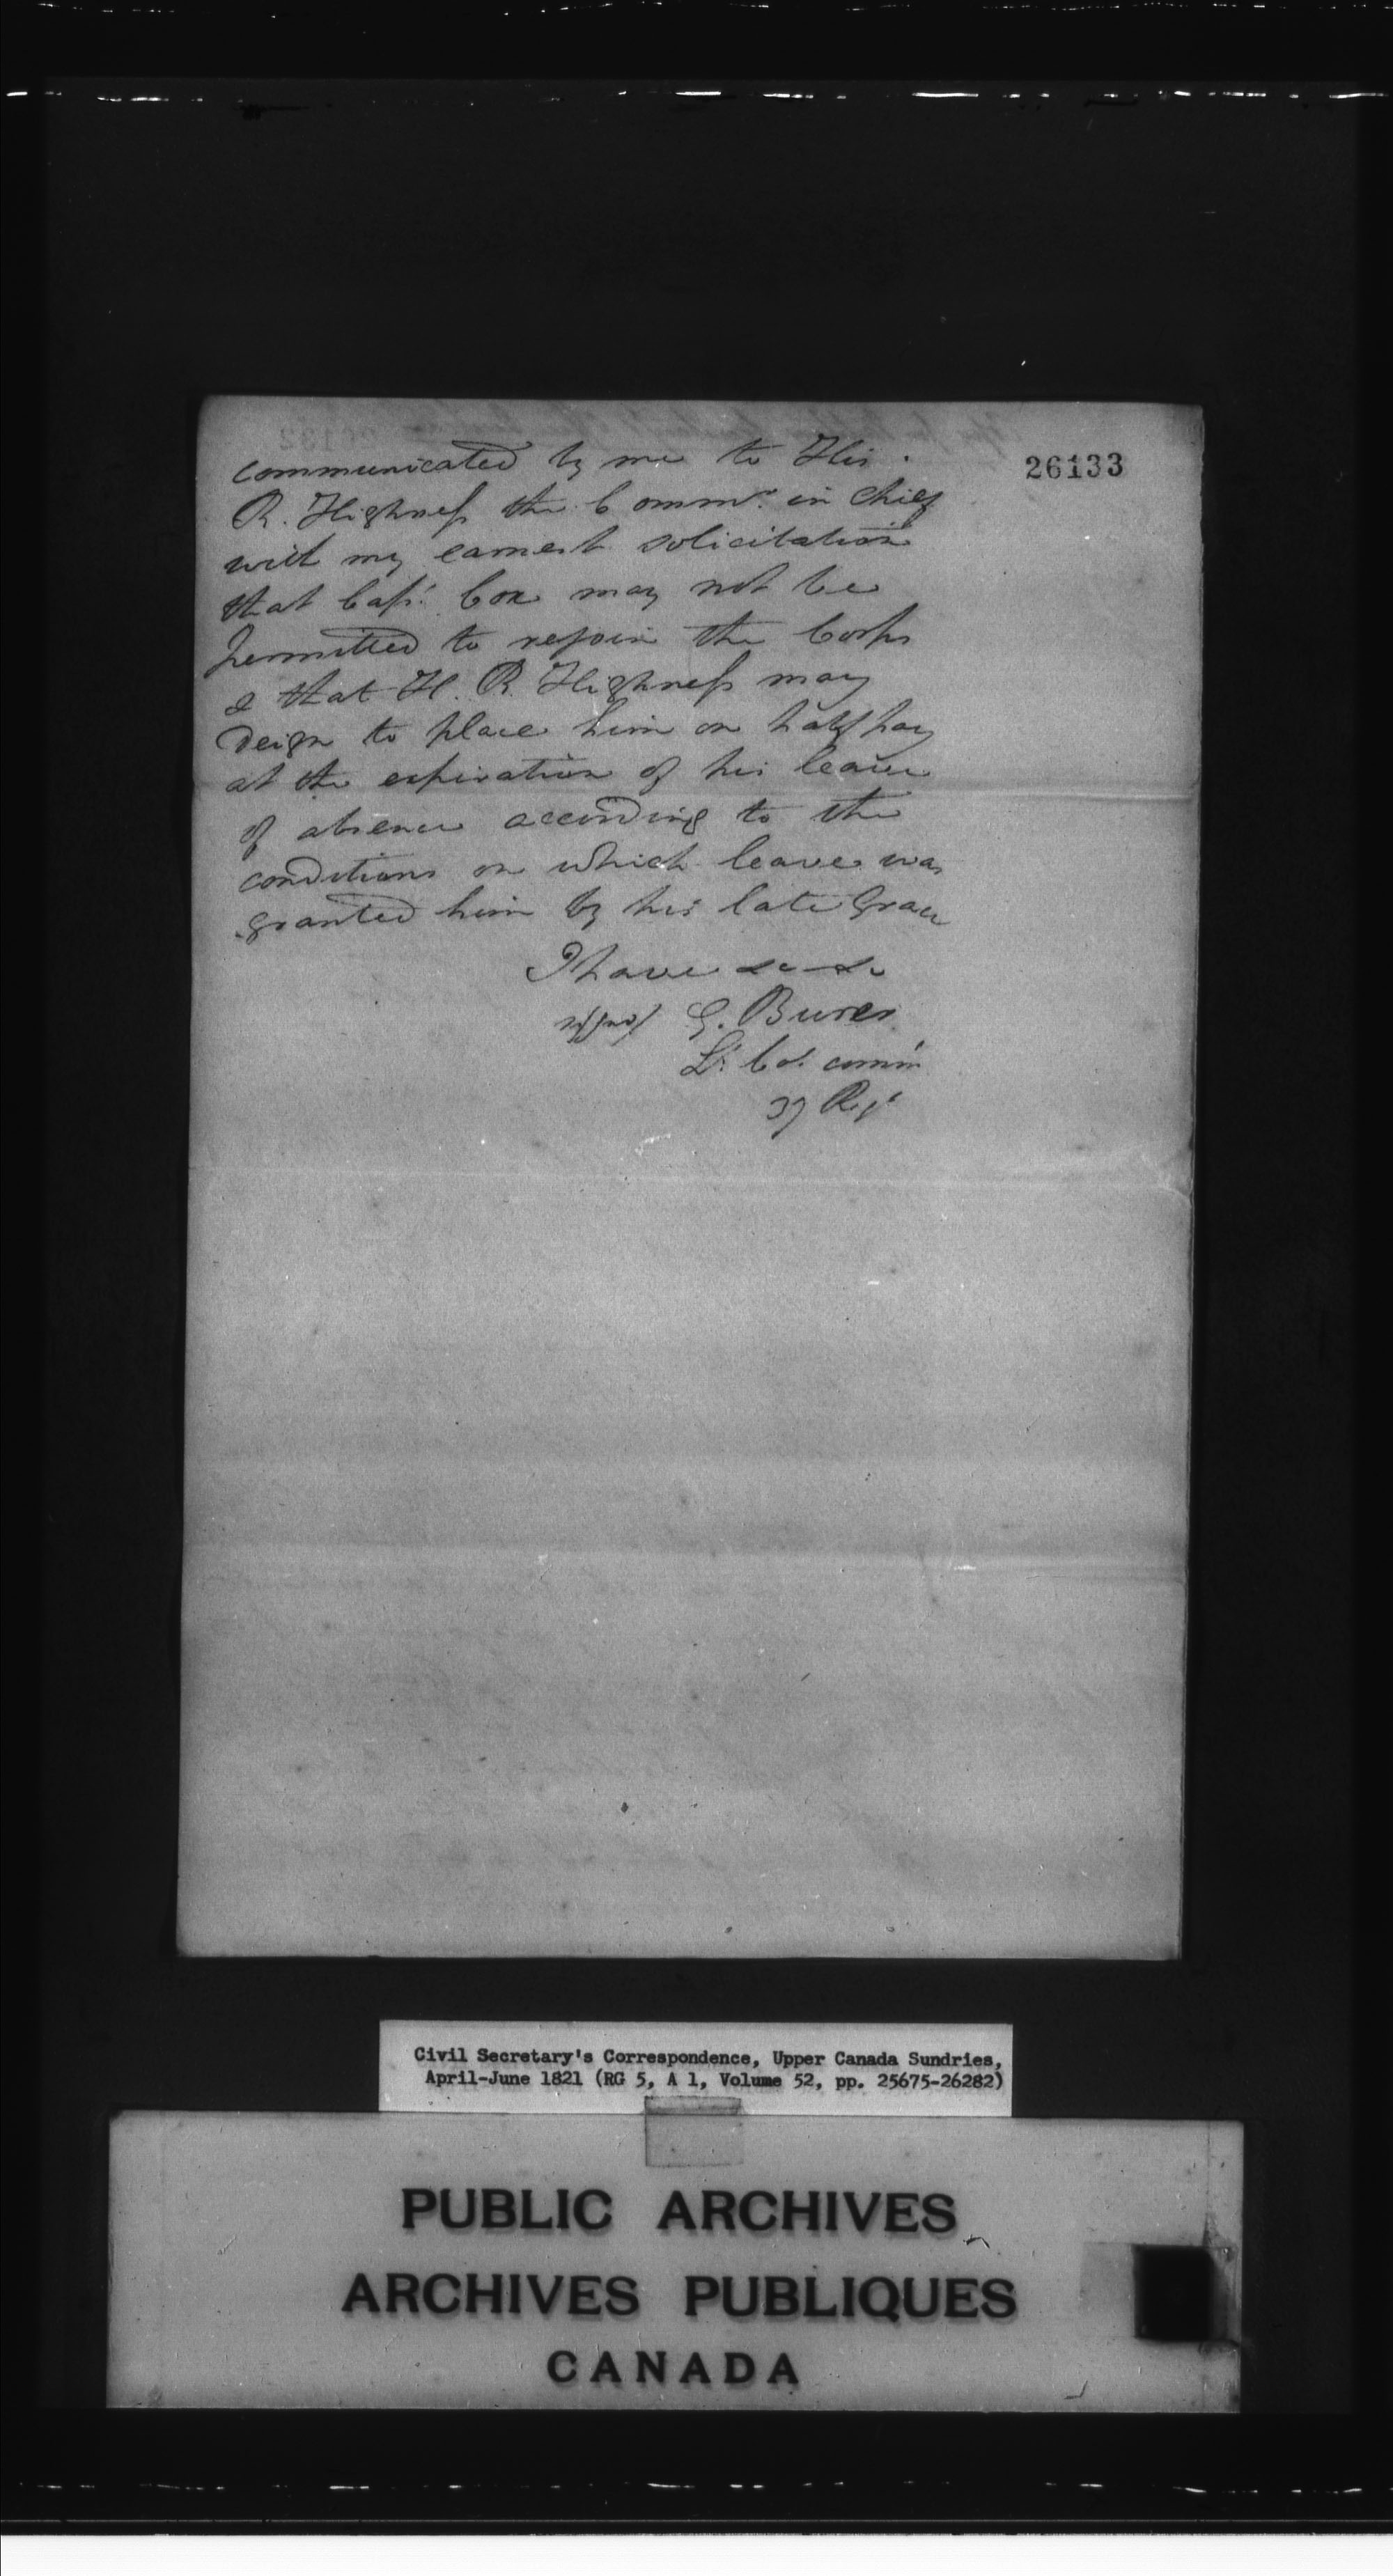 26133
communicated by me to His
R. Highness the Commr. in Chief
with my earnest solicitation
that Capt. Cox may not be
permitted to rejoin the Corps
& that H. R. Highness may
deign to place him on half pay
at the expiration of his leave
of absence according to the
conditions on which leave was
granted him by his late Grace
I have &c &c
signed G. Burer
Lt. Col. comm
37 Regt
Civil Secretary's Correspondence, Upper Canada Sundries,
April-June 1821 (RG 5, A 1, Volume 52, pp. 25675-26282)
PUBLIC ARCHIVES
ARCHIVES PUBLIQUES
CANADA